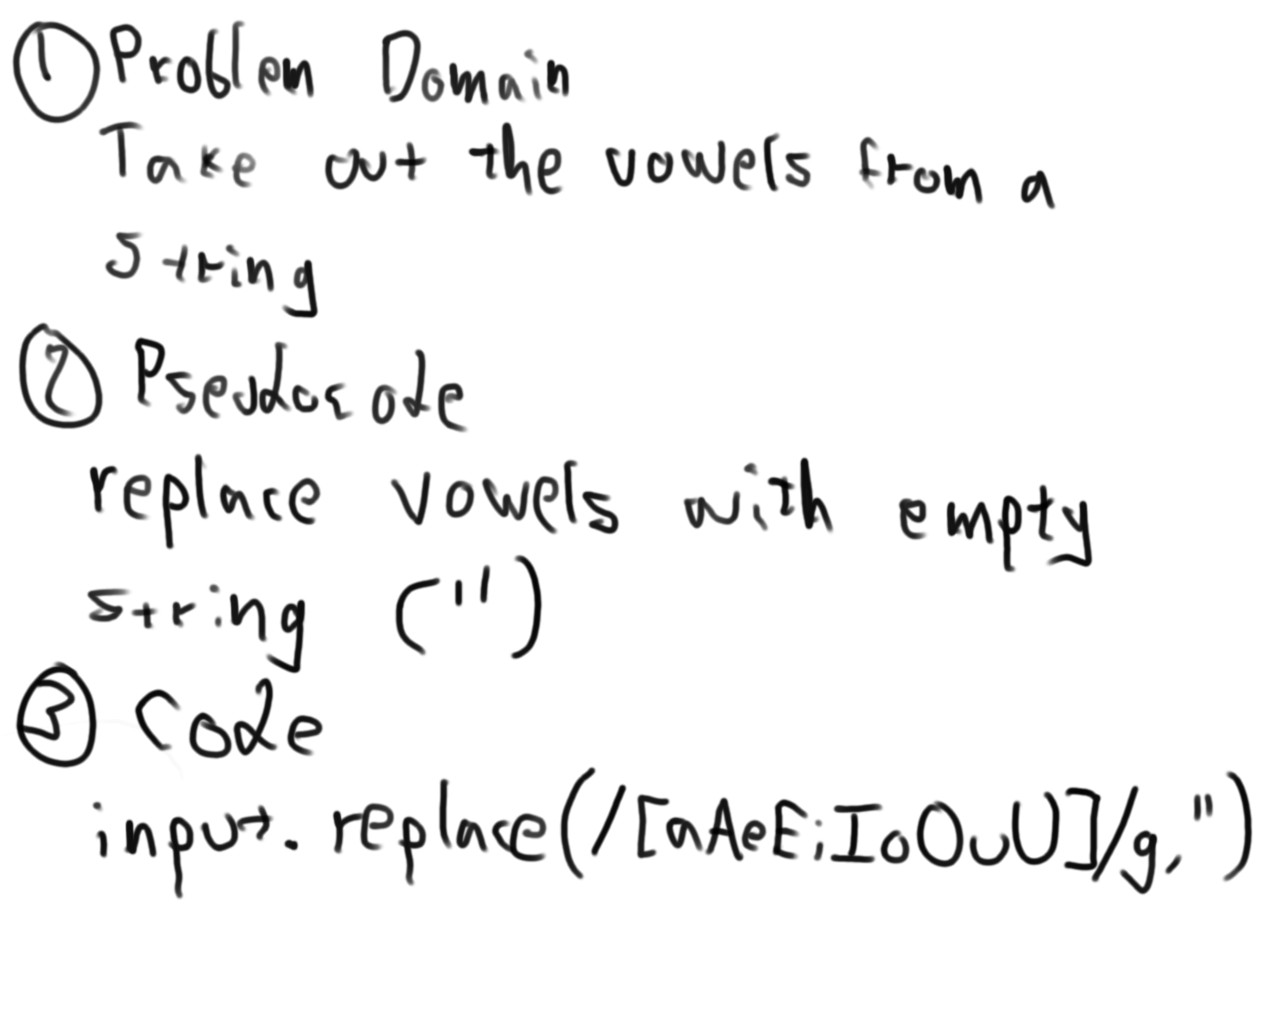 ① Problem Domain
Take out the vowels from a
string
② Pseudocode
replace vowels with empty
string ('')
③ Code
input.replace(/[aAeEiIoOuU]/g,'')